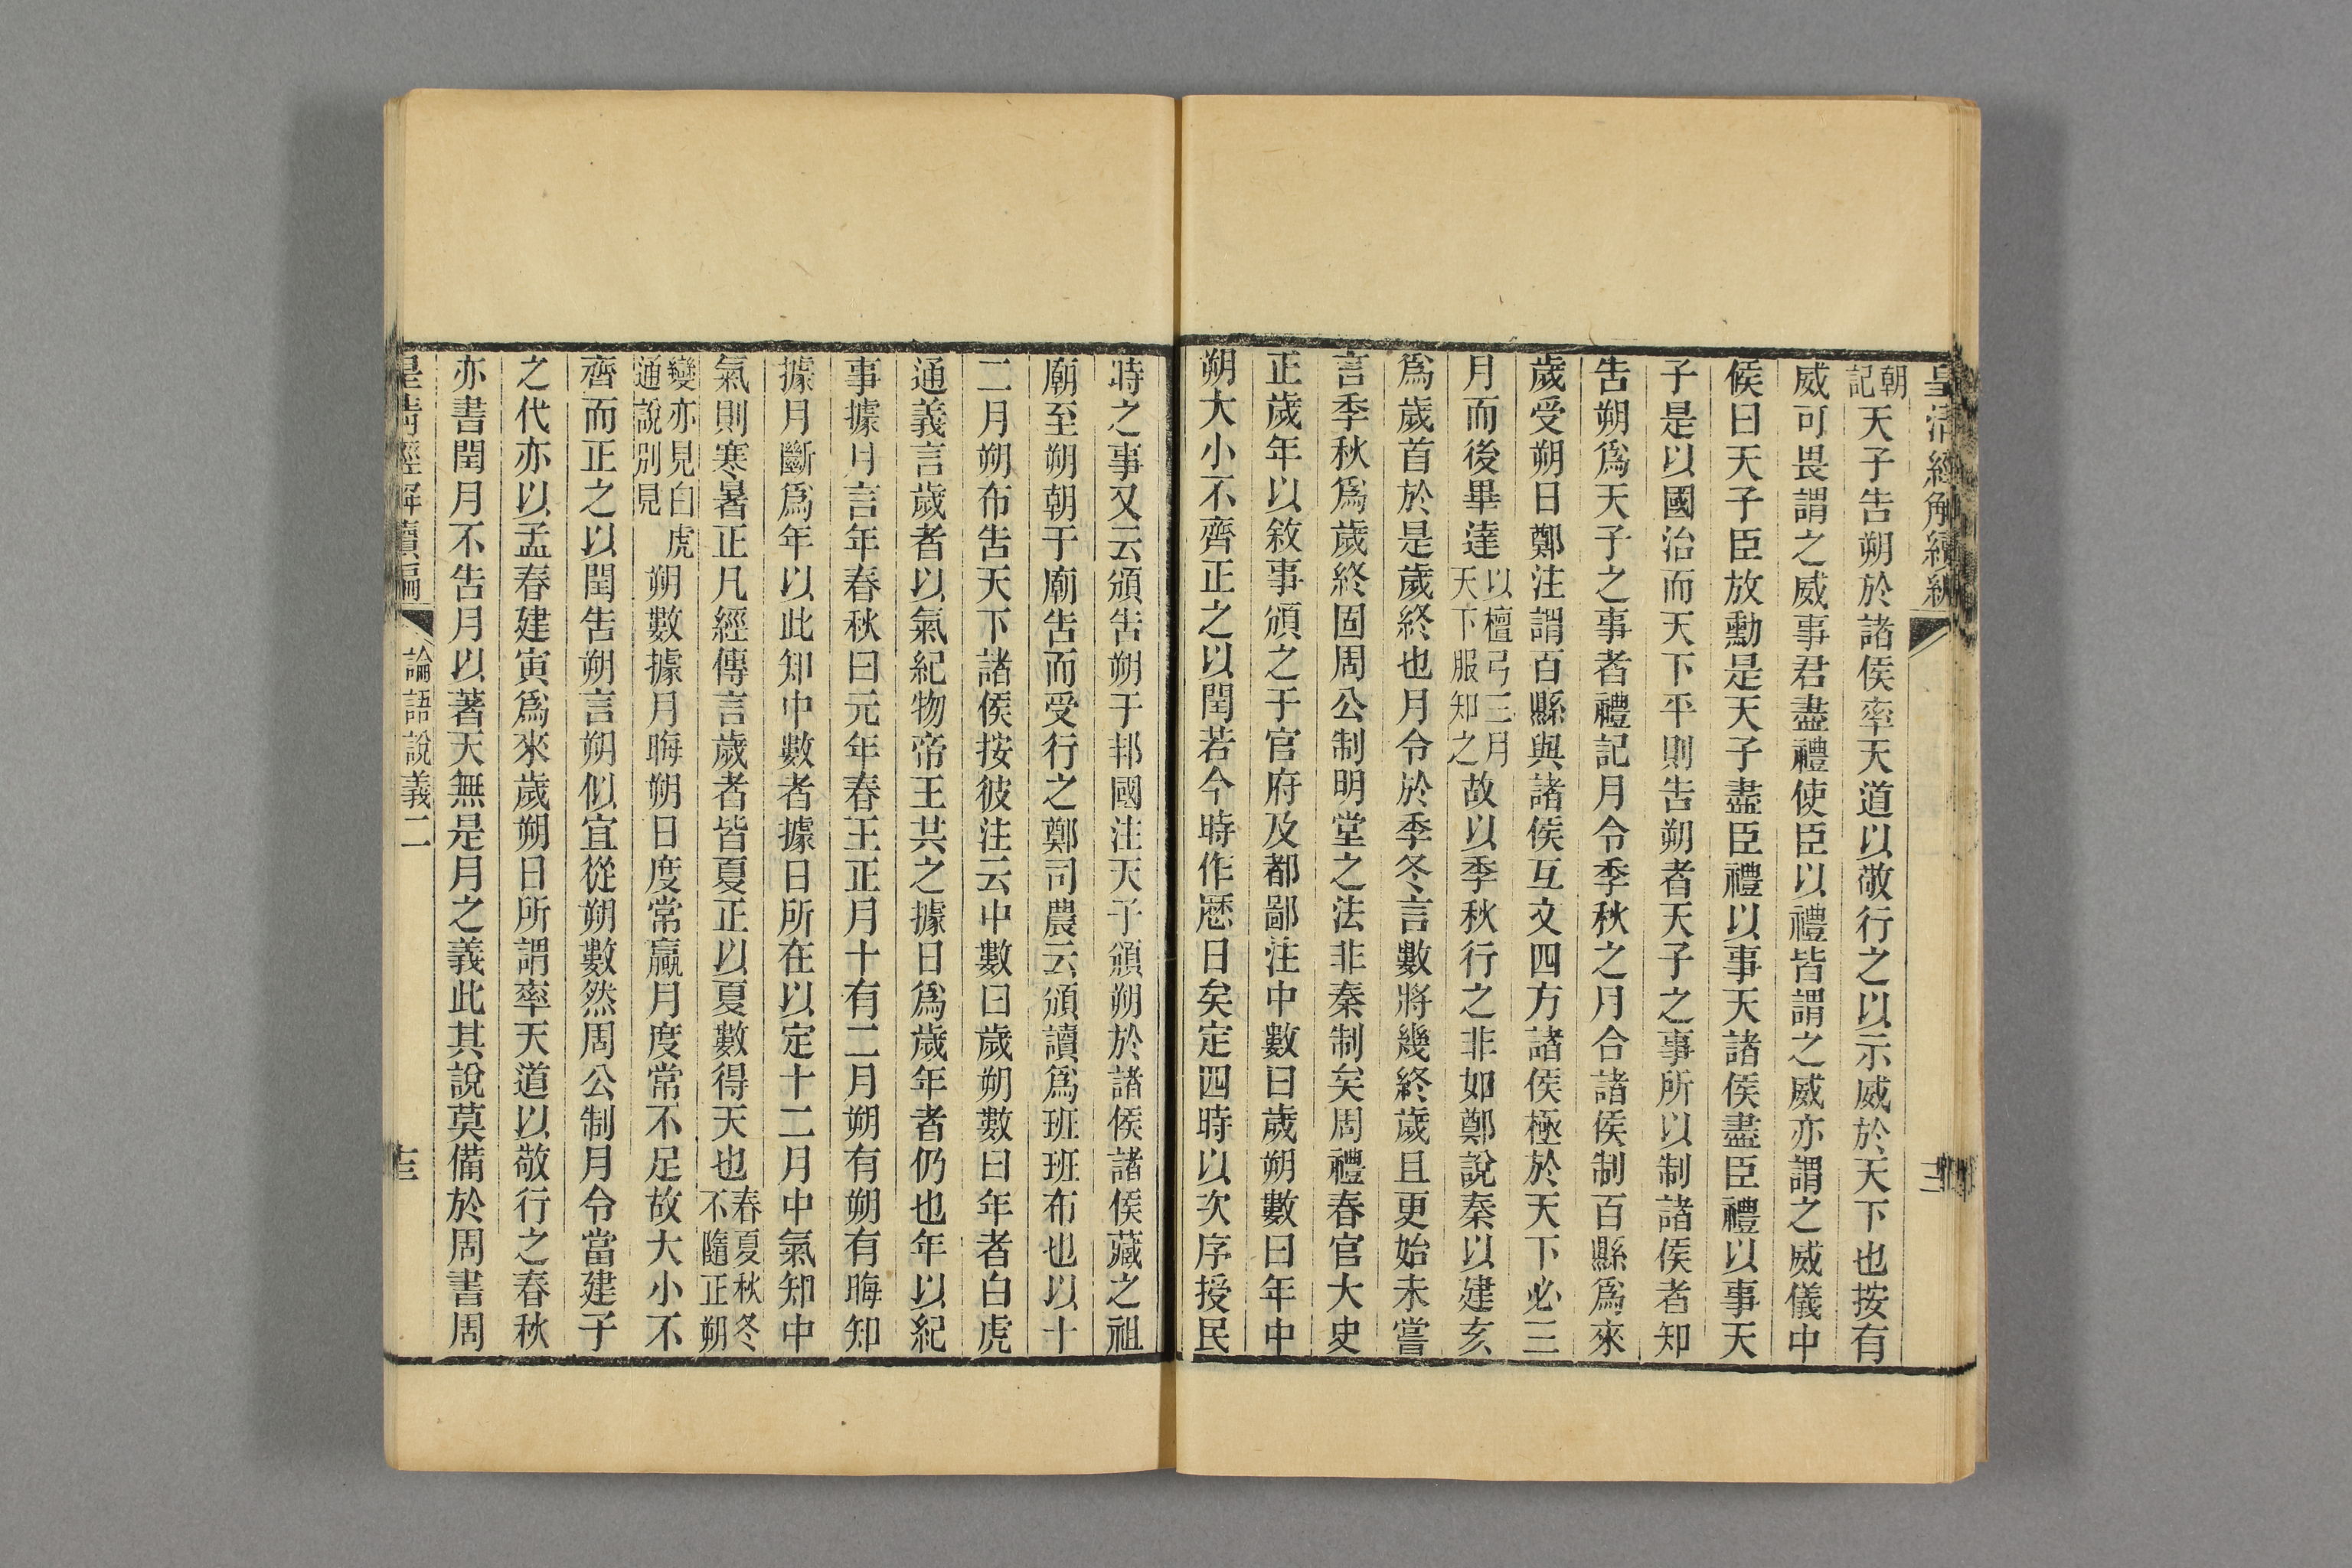 皇清經解續編
三
朝記天子告朔於諸侯率天道以敬行之以示威於天下也按有
威可畏謂之威事君盡禮使臣以禮皆謂之威亦謂之威儀中
侯曰天子臣放勳是天子盡臣禮以事天諸侯盡臣禮以事天
子是以國治而天下平則告朔者天子之事所以制諸侯者知
告朔爲天子之事者禮記月令季秋之月合諸侯制百縣爲來
歲受朔日鄭注謂百縣與諸侯互文四方諸侯極於天下必三
月而後畢達以檀弓三月天下服知之故以季秋行之非如鄭說秦以建亥
爲歲首於是歲終也月令於季冬言數將幾終歲且更始未嘗
言季秋爲歲終固周公制明堂之法非秦制矣周禮春官大史
正歲年以敘事頒之于官府及都鄙注中數曰歲朔數曰年中
朔大小不齊正之以閏若今時作厯日矣定四時以次序授民
時之事又云頒告朔于邦國注天子頒朔於諸侯諸侯藏之祖
廟至朔朝于廟告而受行之鄭司農云頒讀爲班班布也以十
二月朔布告天下諸侯按彼注云中數曰歲朔數曰年者白虎
通義言歲者以氣紀物帝王共之據日爲歲年者仍也年以紀
事據月言年春秋曰元年春王正月十有二月朔有朔有晦知
據月斷爲年以此知中數者據日所在以定十二月中氣知中
氣則寒暑正凡經傳言歲者皆夏正以夏數得天也春夏秋冬不隨正朔
變亦見白虎通說別見朔數據月晦朔日度常贏月度常不足故大小不
齊而正之以閏告朔言朔似宜從朔數然周公制月令當建子
之代亦以孟春建寅爲來歲朔日所謂率天道以敬行之春秋
亦書閏月不告月以著天無是月之義此其說莫備於周書周
皇清經解續編
論語說義二
十三